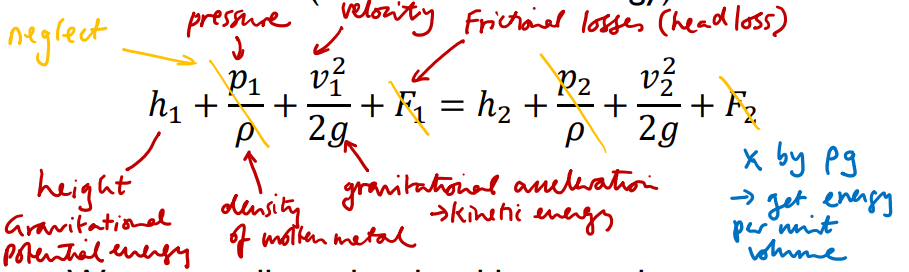 neglect
pressure
velocity
Frictional losses (head loss)
h₁ + p₁/ρ + v₁²/2g + F₁ = h₂ + p₂/ρ + v₂²/2g + F₂
height
Gravitational
potential energy
density
of molten metal
gravitational acceleration
→ kinetic energy
x by ρg
→ get energy
per unit
volume